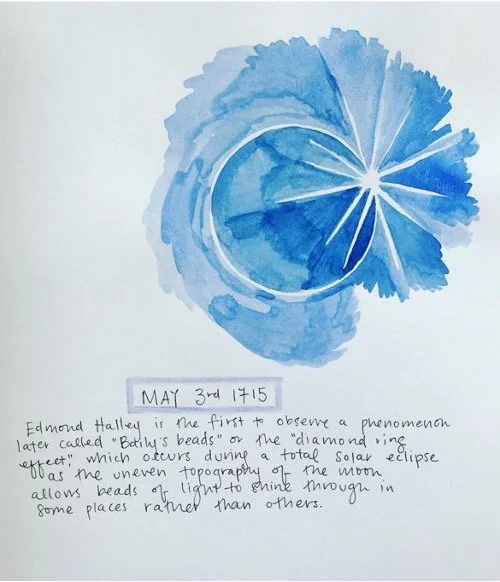 MAY 3rd 1715
Edmond Halley is the first to observe a phenomenon
later called "Baily's beads" or the "diamond ring
effect," which occurs during a total solar eclipse
as the uneven topography of the moon
allows beads of light to shine through in
some places rather than others.